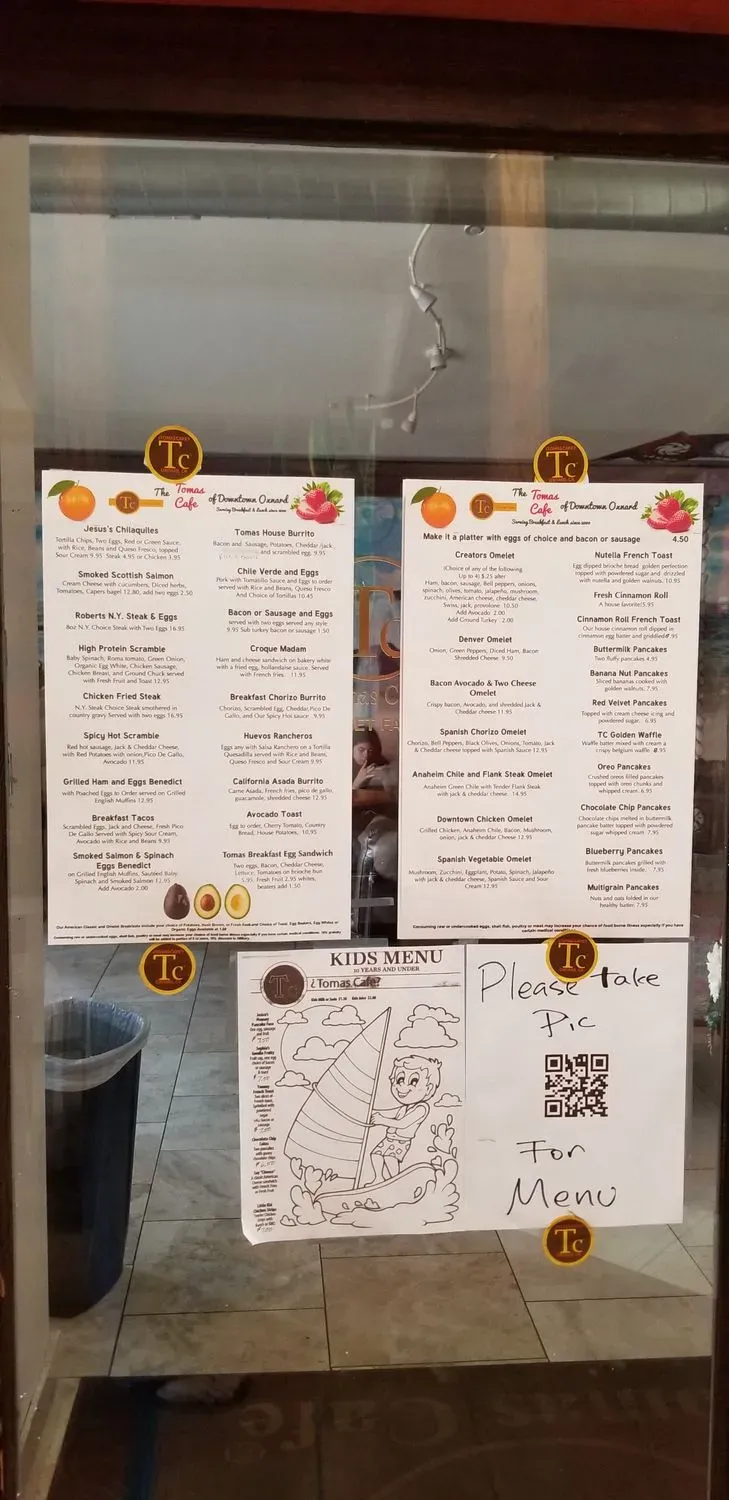 TC
The Tomas Cafe of Downtown Oxnard
Serving Breakfast & Lunch since 2000
Jesus's Chilaquiles
Tortilla Chips, Two Eggs, Red or Green Sauce,
with Rice, Beans and Queso Fresco, topped
Sour Cream 9.95 Steak 4.95 or Chicken 3.95
Smoked Scottish Salmon
Cream Cheese with cucumbers, Diced herbs,
Tomatoes, Capers bagel 12.80, add two eggs 2.50
Roberts N.Y. Steak & Eggs
8oz N.Y. Choice Steak with Two Eggs 16.95
High Protein Scramble
Baby Spinach, Roma tomato, Green Onion,
Organic Egg White, Chicken Sausage,
Chicken Breast, and Ground Chuck served
with Fresh Fruit and Toast 12.95
Chicken Fried Steak
N.Y. Steak Choice Steak smothered in
country gravy Served with two eggs 16.95
Spicy Hot Scramble
Red hot sausage, Jack & Cheddar Cheese,
with Red Potatoes with onion, Pico De Gallo,
Avocado 11.95
Grilled Ham and Eggs Benedict
with Poached Eggs to Order served on Grilled
English Muffins 12.95
Breakfast Tacos
Scrambled Eggs, Jack and Cheese, Fresh Pico
De Gallo Served with Spicy Sour Cream,
Avocado with Rice and Beans 9.95
Smoked Salmon & Spinach
Eggs Benedict
on Grilled English Muffins, Sauteed Baby
Spinach and Smoked Salmon 12.95
Add Avocado 2.00
Tomas House Burrito
Bacon and Sausage, Potatoes, Cheddar /Jack
and scrambled egg. 9.95
Chile Verde and Eggs
Pork with Tomatillo Sauce and Eggs to order
served with Rice and Beans, Queso Fresco
And Choice of Tortillas 10.45
Bacon or Sausage and Eggs
served with two eggs served any style
9.95 Sub turkey bacon or sausage 1.50
Croque Madam
Ham and cheese sandwich on bakery white
with a fried egg, hollandaise sauce. Served
with French fries. 11.95
Breakfast Chorizo Burrito
Chorizo, Scrambled Egg, Cheddar, Pico De
Gallo, and Our Spicy Hot sauce 9.95
Huevos Rancheros
Eggs any with Salsa Ranchero on a Tortilla
Quesadilla served with Rice and Beans,
Queso Fresco and Sour Cream 9.95
California Asada Burrito
Carne Asada, French fries, pico de gallo,
guacamole, shredded cheese 12.95
Avocado Toast
Egg to order, Cherry Tomato, Country
Bread, House Potatoes, 10.95
Tomas Breakfast Egg Sandwich
Two eggs, Bacon, Cheddar Cheese,
Lettuce, Tomatoes on brioche bun
5.95 Fresh Fruit 2.95 whites,
beaters add 1.50
TC
The Tomas Cafe of Downtown Oxnard
Serving Breakfast & Lunch since 2000
Make it a platter with eggs of choice and bacon or sausage 4.50
Creators Omelet
(Choice of any of the following
Up to 4) $.25 after
Ham, bacon, sausage, Bell peppers, onions,
spinach, olives, tomato, jalapeño, mushroom,
zucchini, American cheese, cheddar cheese,
Swiss, jack, provolone 10.50
Add Avocado 2.00
Add Ground Turkey 2.00
Denver Omelet
Onion, Green Peppers, Diced Ham, Bacon
Shredded Cheese. 9.50
Bacon Avocado & Two Cheese
Omelet
Crispy bacon, Avocado, and shredded Jack &
Cheddar cheese 11.95
Spanish Chorizo Omelet
Chorizo, Bell Peppers, Black Olives, Onions, Tomato, Jack
& Cheddar cheese topped with Spanish Sauce 12.95
Anaheim Chile and Flank Steak Omelet
Anaheim Green Chile with Tender Flank Steak
with jack & cheddar cheese. 14.95
Downtown Chicken Omelet
Grilled Chicken, Anaheim Chile, Bacon, Mushroom,
onion, jack & Cheddar Cheese 12.95
Spanish Vegetable Omelet
Mushroom, Zucchini, Eggplant, Potato, Spinach, Jalapeño
with jack & cheddar cheese, Spanish Sauce and Sour
Cream 12.95
Nutella French Toast
Egg dipped brioche bread golden perfection
topped with powdered sugar and drizzled
with nutella and golden walnuts. 10.95
Fresh Cinnamon Roll
A house favorite! 5.95
Cinnamon Roll French Toast
Our house cinnamon roll dipped in
cinnamon egg batter and griddled .95
Buttermilk Pancakes
Two fluffy pancakes 4.95
Banana Nut Pancakes
Sliced bananas cooked with
golden walnuts. 7.95
Red Velvet Pancakes
Topped with cream cheese icing and
powdered sugar. 6.95
TC Golden Waffle
Waffle batter mixed with cream a
crispy belgium waffle .95
Oreo Pancakes
Crushed oreos filled pancakes
topped with oreo chunks and
whipped cream. 6.95
Chocolate Chip Pancakes
Chocolate chips melted in buttermilk
pancake batter topped with powdered
sugar whipped cream 7.95
Blueberry Pancakes
Buttermilk pancakes grilled with
fresh blueberries inside. 7.95
Multigrain Pancakes
Nuts and oats folded in our
healthy batter. 7.95
TC
KIDS MENU
10 YEARS AND UNDER
¿Tomas Cafe?
Please take
Pic
For
Menu
TC